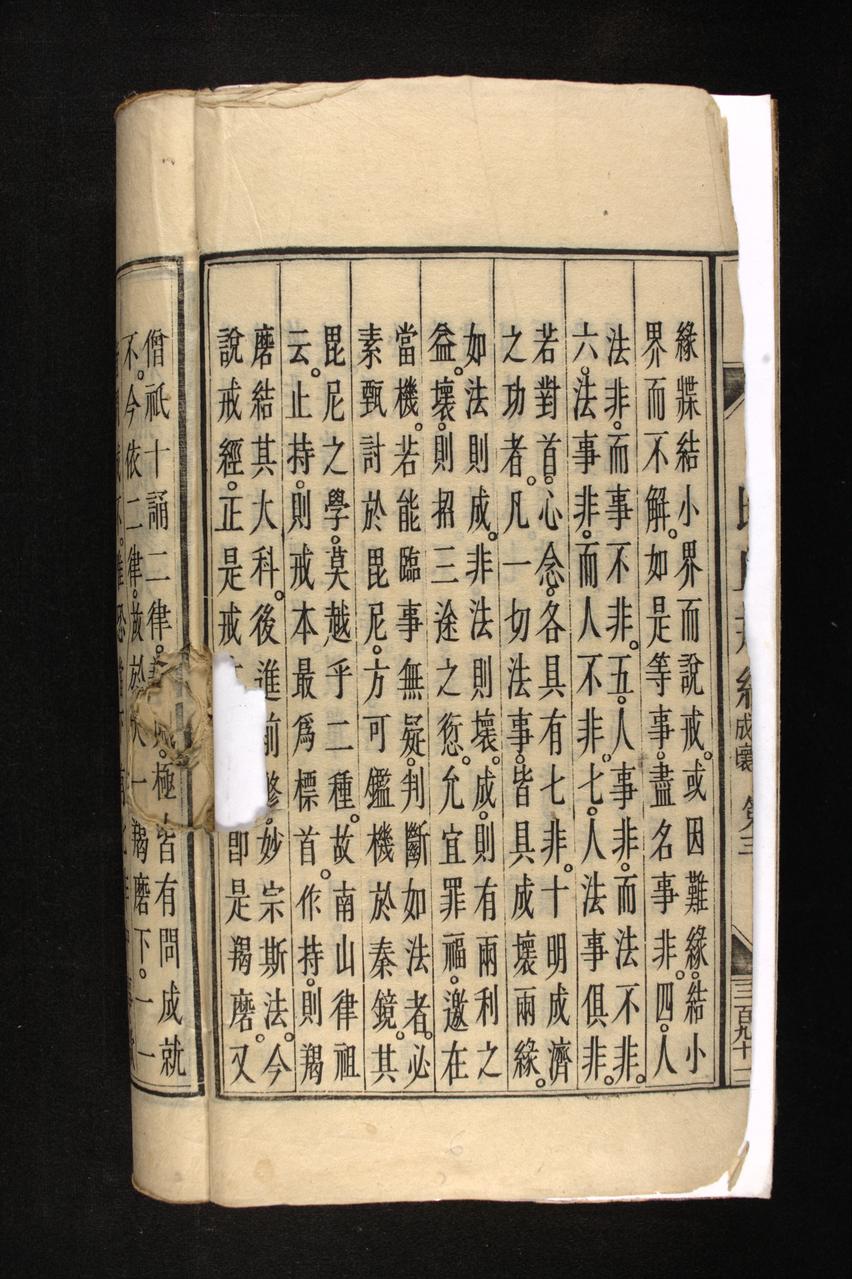 成壞 第三
三百九十一
緣牒結小界而說戒。或因難緣。結小
界而不解。如是等事。盡名事非。四。人
法非。而事不非。五。人事非。而法不非。
六。法事非。而人不非。七。人法事俱非。
若對首。心念。各具有七非。十明成濟
之功者。凡一切法事。皆具成壞兩緣。
如法則成。非法則壞。成。則有兩利之
益。壞。則招三途之愆。允宜罪福。邀在
當機。若能臨事無疑。判斷如法者。必
素甄討於毘尼。方可鑑機於秦鏡。其
毘尼之學。莫越乎二種。故南山律祖
云。止持。則戒本最為標首。作持。則羯
磨結其大科。後進前修。妙宗斯法。今
說戒經。正是戒 即是羯磨。又
僧祇十誦二律。 極皆有問成就
不。今依二律。故於 一羯磨下。一一